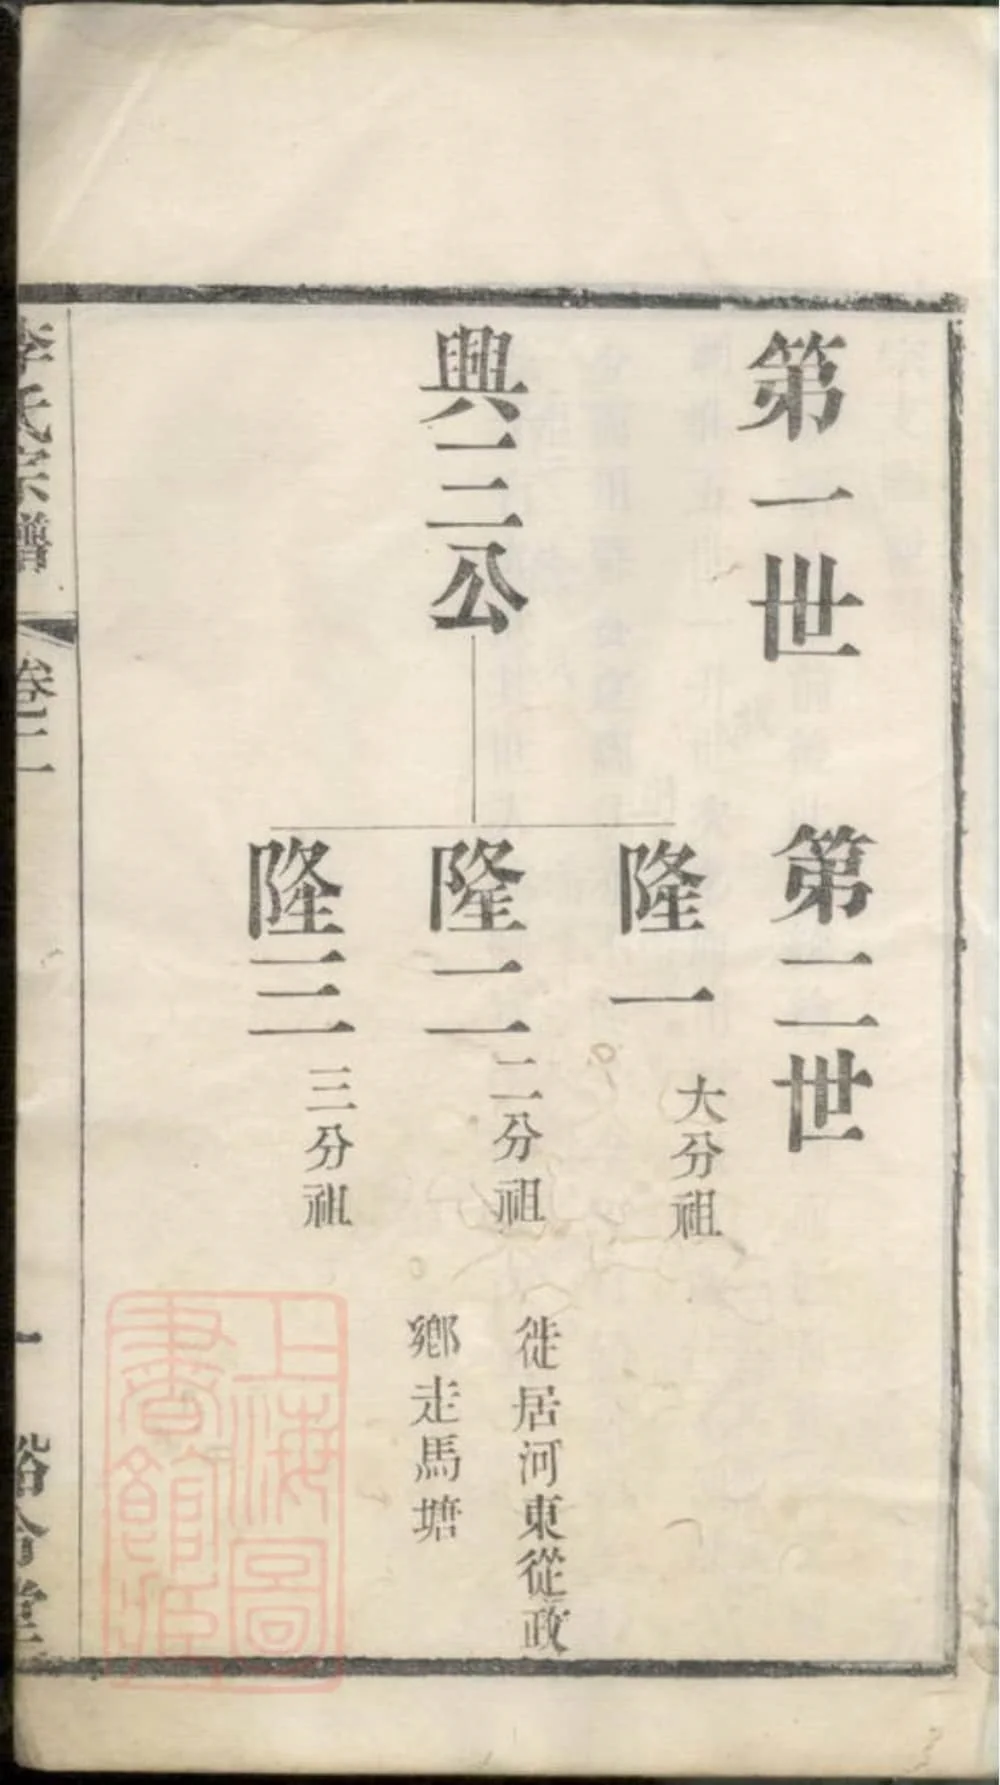 第一世
第二世
興三公
隆一
大分祖
隆二
二分祖
徙居河東從政
鄉走馬塘
隆三
三分祖
李氏宗譜
卷三
一
上海圖
書館藏